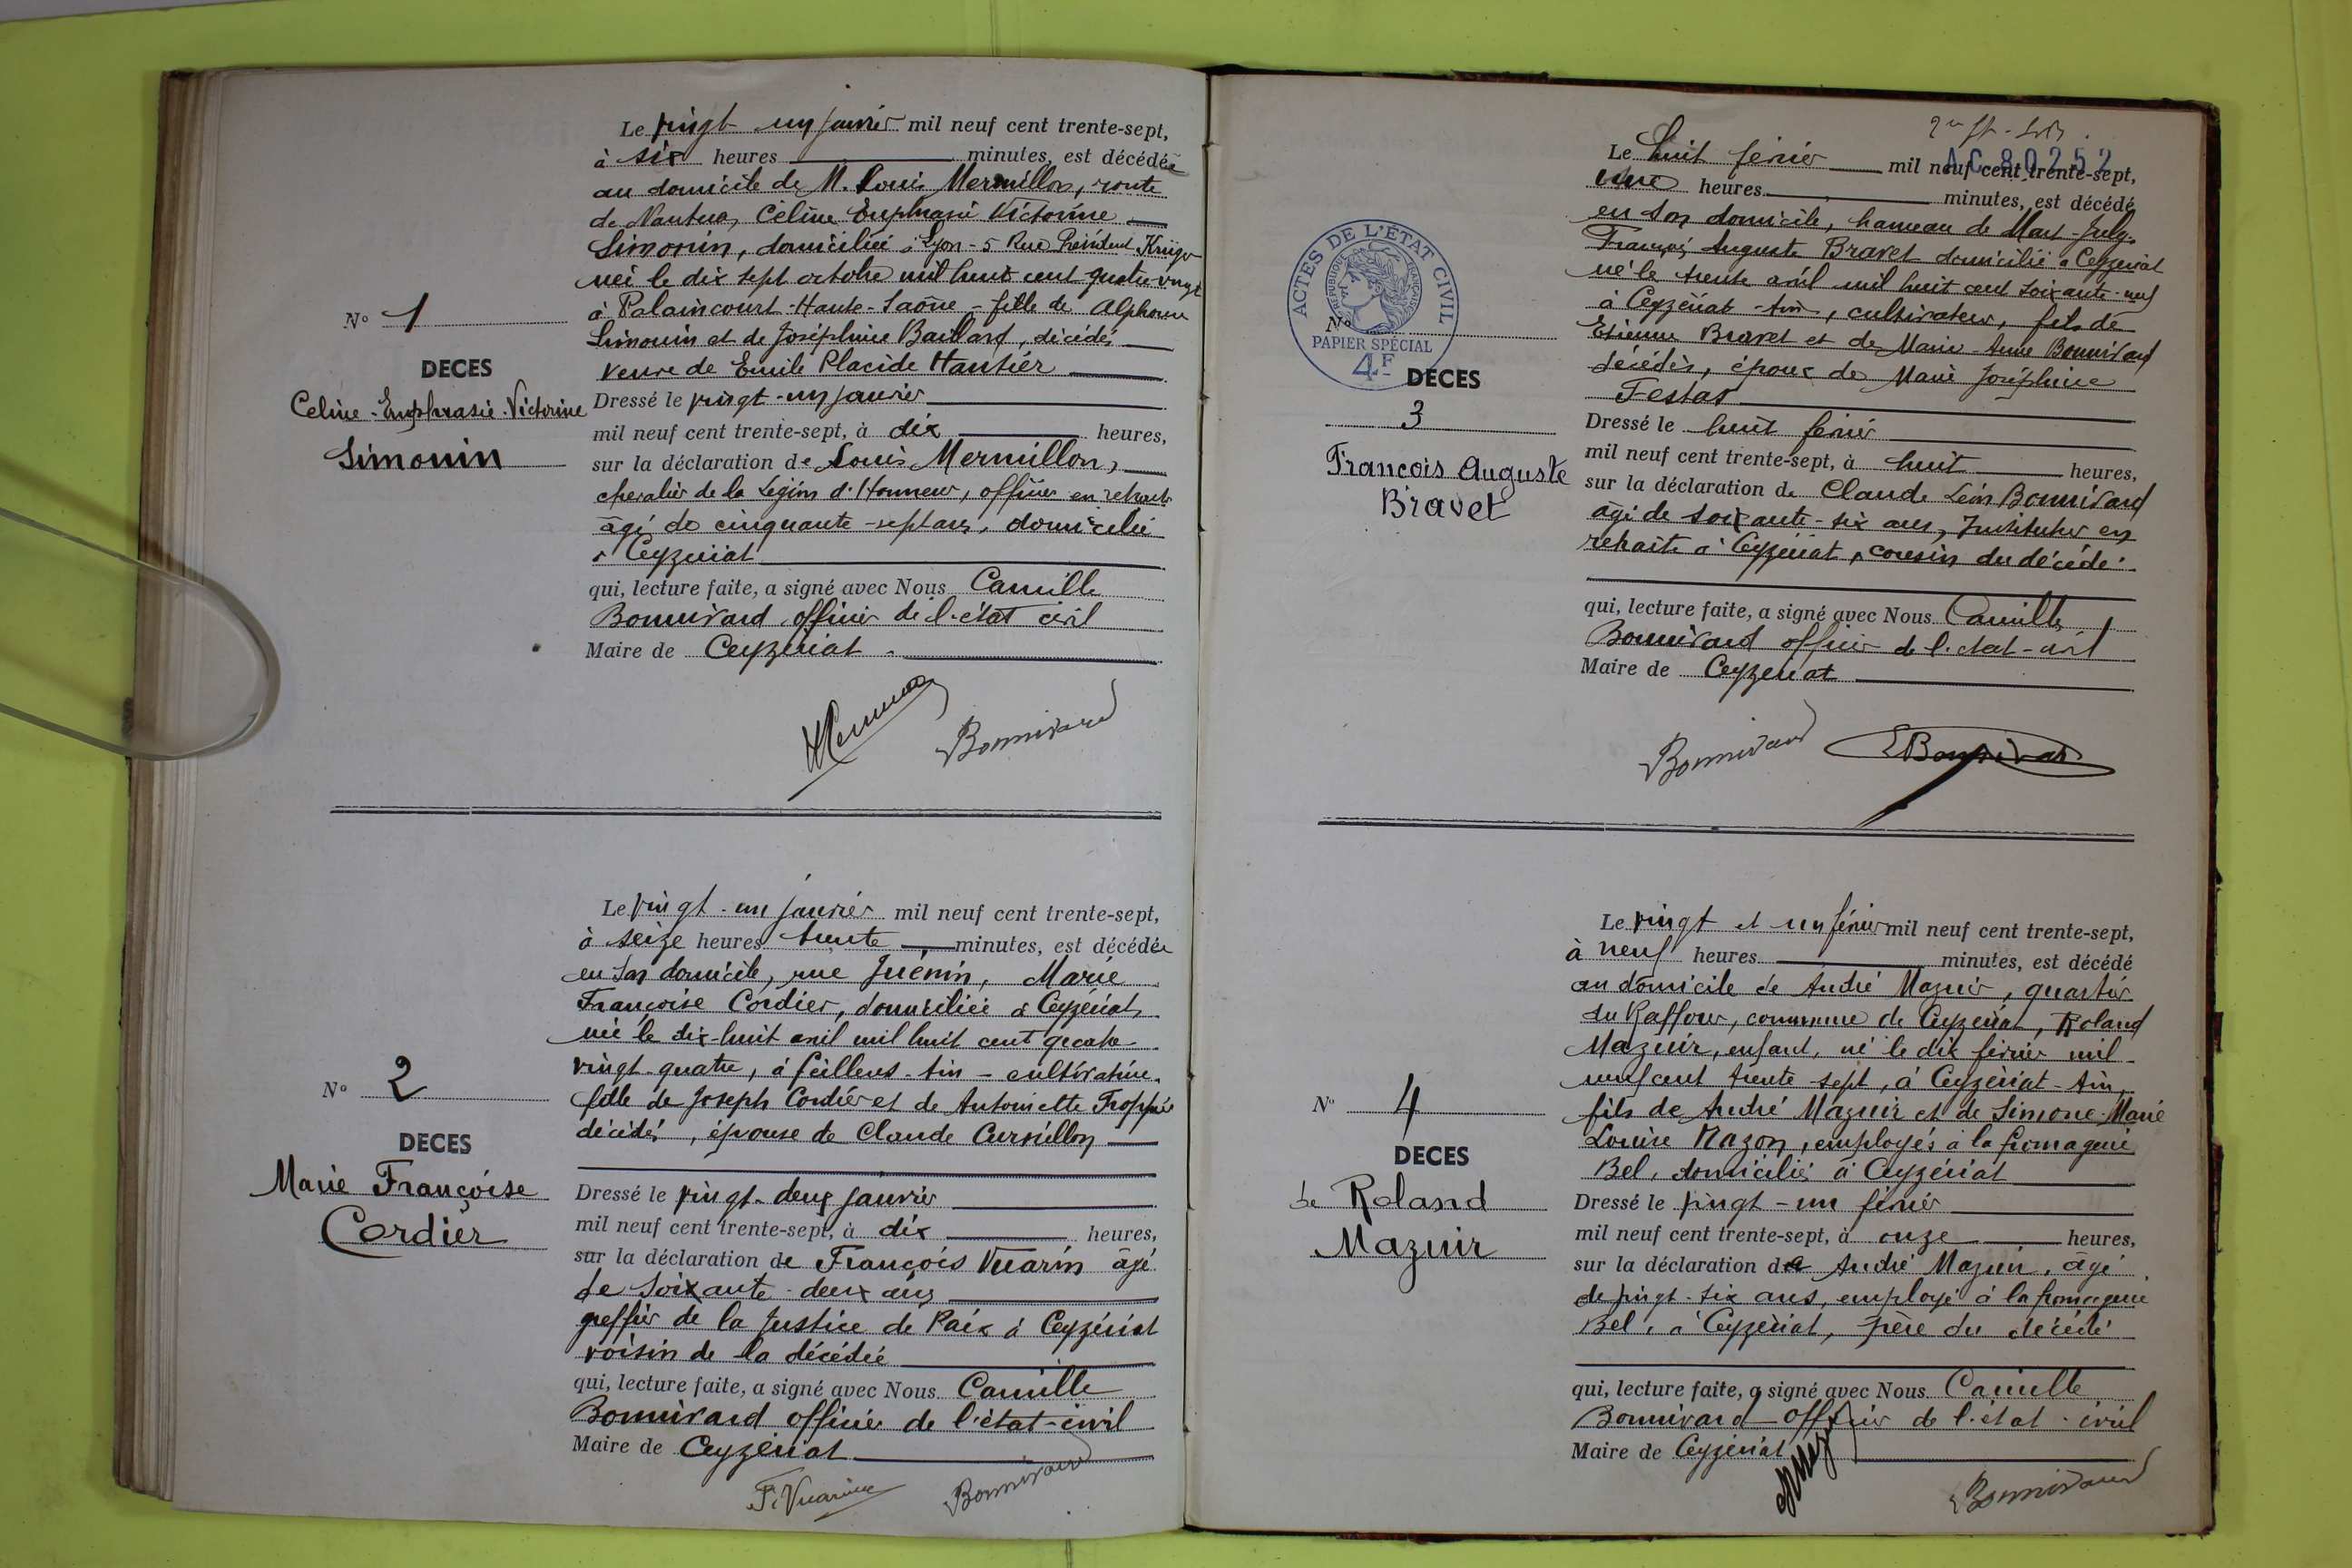 Le vingt-un janvier mil neuf cent trente-sept,
à six heures minutes, est décédée
au domicile de M. Louis Mermillon, route
de Nantua, Céline Euphrasie Victorine
Simonin, domiciliée à Lyon - 5 Rue Président Krüger
née le dix sept octobre mil huit cent quatre-vingt
à Palaincourt - Haute-Saône - fille de Alphonse
Simonin et de Joséphine Baillard, décédés
veuve de Emile Placide Hantier
N° 1
DECES
Celine-Euphrasie-Victorine
Simonin
Dressé le vingt-un janvier
mil neuf cent trente-sept, à dix heures,
sur la déclaration de Louis Mermillon,
chevalier de la Légion d'Honneur, officier en retraite
âgé de cinquante-sept ans, domicilié
à Ceyzériat
qui, lecture faite, a signé avec Nous Camille
Bonnivard officier de l'état civil
Maire de Ceyzériat
Bonnivard
Le vingt-un janvier mil neuf cent trente-sept,
à seize heures trente minutes, est décédée
en son domicile, rue Guénin, Marie
Françoise Cordier, domiciliée à Ceyzériat
née le dix-huit avril mil huit cent quatre
vingt-quatre, à Feillens-Ain - cultivatrice
fille de Joseph Cordier et de Antoinette
décédés, épouse de Claude Curnillon
N° 2
DECES
Marie Françoise
Cordier
Dressé le vingt-deux janvier
mil neuf cent trente-sept, à dix heures,
sur la déclaration de François Vuarin âgé
de soixante-deux ans
greffier de la Justice de Paix à Ceyzériat
voisin de la décédée
qui, lecture faite, a signé avec Nous Camille
Bonnivard officier de l'état-civil
Maire de Ceyzériat
F. Vuarin
Bonnivard
AC 80252
Le huit février mil neuf cent trente-sept,
une heures minutes, est décédé
en son domicile, hameau de Mont-July
François Auguste Bravet domicilié à Ceyzériat
né le trente avril mil huit cent soixante-neuf
à Ceyzériat-Ain, cultivateur, fils de
Etienne Bravet et de Marie Anne Bonnivard
décédés, époux de Marie Joséphine
Festas
ACTES DE L'ÉTAT CIVIL
RÉPUBLIQUE FRANÇAISE
N°
PAPIER SPÉCIAL
4F
DECES
3
François Auguste
Bravet
Dressé le huit février
mil neuf cent trente-sept, à huit heures,
sur la déclaration de Claude Léon Bonnivard
âgé de soixante-six ans, Instituteur en
retraite à Ceyzériat, cousin du décédé
qui, lecture faite, a signé avec Nous Camille
Bonnivard officier de l'état-civil
Maire de Ceyzériat
Bonnivard
Bonnivard
Le vingt et un février mil neuf cent trente-sept,
à neuf heures minutes, est décédé
au domicile de André Mazuir, quartier
du Raffour, commune de Ceyzériat, Roland
Mazuir, enfant, né le dix février mil
neuf cent trente-sept, à Ceyzériat-Ain,
fils de André Mazuir et de Simone-Marie
Louise Mazon, employés à la fromagerie
Bel, domiciliés à Ceyzériat
N° 4
DECES
de Roland
Mazuir
Dressé le vingt-un février
mil neuf cent trente-sept, à onze heures,
sur la déclaration de André Mazuir, âgé
de vingt-six ans, employé à la fromagerie
Bel, à Ceyzériat, père du décédé
qui, lecture faite, a signé avec Nous Camille
Bonnivard officier de l'état-civil
Maire de Ceyzériat
Bonnivard